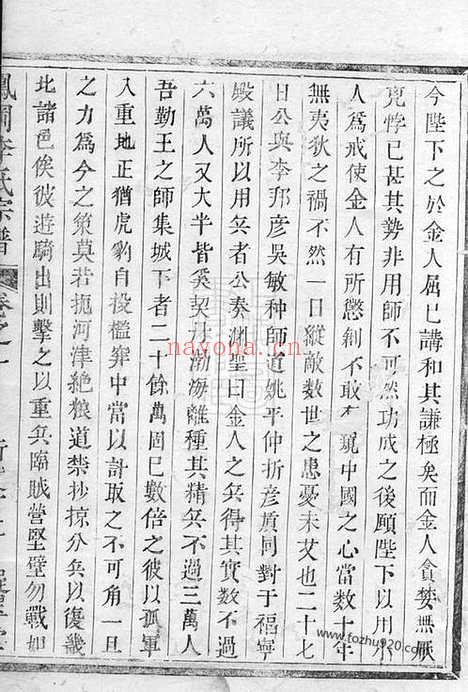 今陛下之於金人屈已講和其謙極矣而金人貪婪無厭
兇悖已甚其勢非用師不可然功成之後願陛下以用
人爲戒使金人有所懲創不敢有覬中國之心當數十年
無夷狄之禍不然一日縱敵數世之患憂未艾也二十七
日公與李邦彥吳敏种師道姚平仲折彥質同對于福寧
殿議所以用兵者公奏淵聖曰金人之兵得其實數不過
六萬人又大半皆奚契丹渤海雜種其精兵不過三萬人
吾勤王之師集城下者二十餘萬固已數倍之彼以孤軍
入重地正猶虎豹自投檻穽中當以計取之不可角一旦
之力爲今之策莫若扼河津絶粮道禁抄掠分兵以復畿
北諸邑俟彼遊騎出則擊之以重兵臨賊營堅壁勿戰如
李氏宗譜
卷之
nayona.cn
www.fozhu920.com